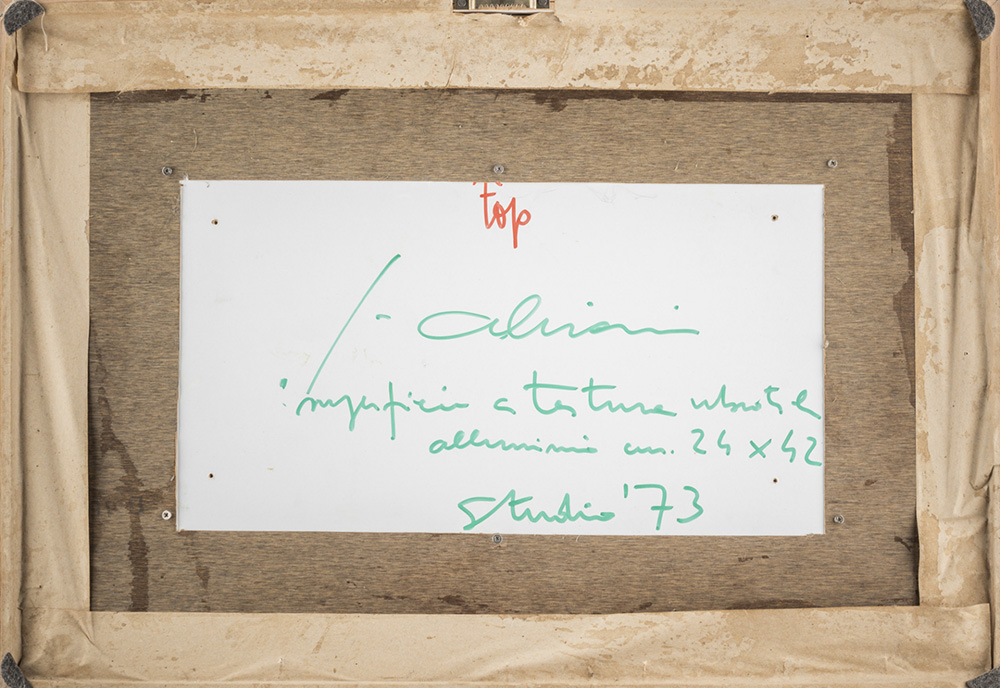 top
/- alviani
"superficie a testura vibratile
alluminio cm. 24 x 42
studio '73